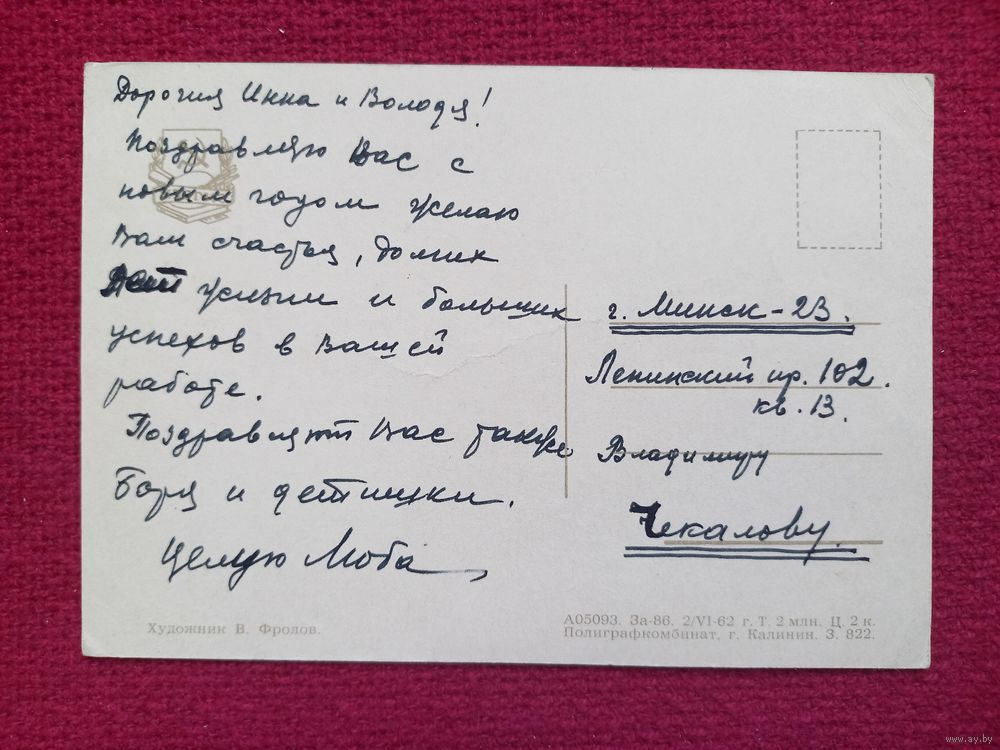 Дорогия Инна и Володя!
поздравляю Вас с
новым годом желаю
Вам счастья, долгих
лет жизни и больших
успехов в вашей
работе.
Поздравляют Вас также
Боря и детишки.
Целую Люба
г. Минск-23.
Ленинский пр. 102.
кв. 13.
Владимиру
Чекалову.
Художник В. Фролов.
А05093. За-86. 2/VI-62 г. Т. 2 млн. Ц. 2 к.
Полиграфкомбинат, г. Калинин. З. 822.
www.ay.by